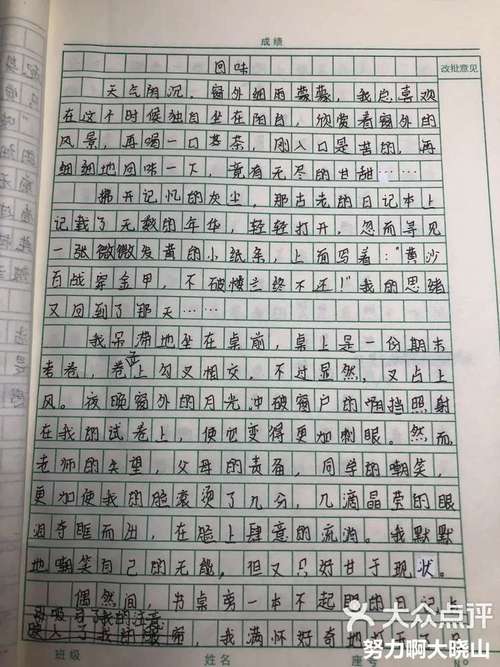 成绩
改批意见
回味
天气阴沉,窗外细雨蒙蒙,我总喜欢
在这个时候独自坐在阳台,欣赏着窗外的
风景,再喝一口苦茶,刚入口是苦的,再
细细地回味一下,竟有无尽的甘甜……
拂开记忆的灰尘,那古老的日记本上
记载了无数的年华,轻轻打开,忽而寻见
一张微微发黄的小纸条,上面写着:"黄沙
百战穿金甲,不破楼兰终不还!"我的思绪
又回到了那天……
我呆滞地坐在桌前,桌上是一份期末
考卷,卷面上勾叉相交,不过显然,叉占上
风。夜晚窗外的月光冲破窗户的阻挡照射
在我的试卷上,使它变得更加刺眼。然而,
老师的失望,父母的责备,同学的嘲笑,
更加使我的脸滚烫了几分,几滴晶莹的眼
泪夺眶而出,在脸上肆意的流淌。我默默
地嘲笑自己的无能,但又只好甘于现状。
偶然间,书桌旁一本不起眼的日记上
吸引了我的注意
我满怀好奇地
班级
姓名
座
大众点评
努力啊大晓山